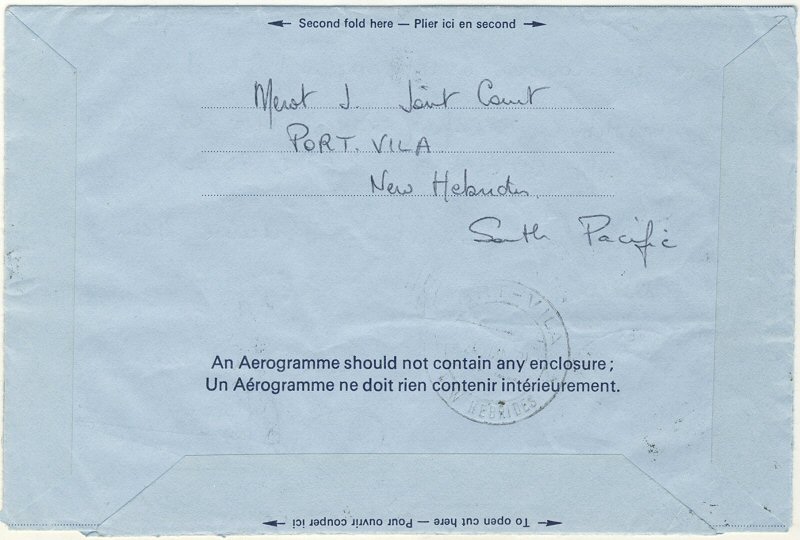 Second fold here — Plier ici en second
Merot J. Joint Court
PORT. VILA
New Hebrides
South Pacific
VILA
HEBRIDES
An Aerogramme should not contain any enclosure ;
Un Aérogramme ne doit rien contenir intérieurement.
To open cut here — Pour ouvrir couper ici